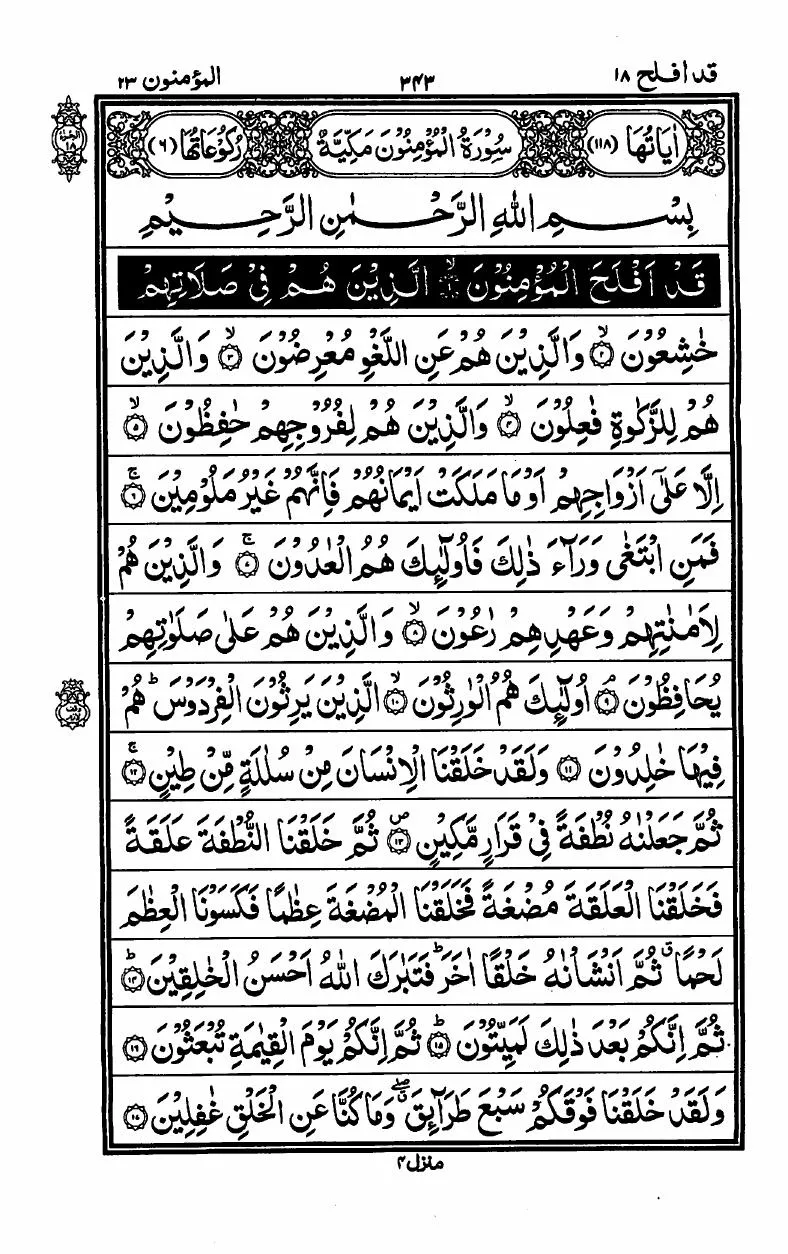 قد افلح ۱۸
۳۴۳
المؤمنون ۲۳
اٰيَاتُهَا (۱۱۸)
سُوْرَةُ الْمُؤْمِنُوْنَ مَكِّيَّةٌ
رُكُوْعَاتُهَا (۶)
الجزء ۱۸
بِسْمِ اللهِ الرَّحْمٰنِ الرَّحِيْمِ
قَدْ اَفْلَحَ الْمُؤْمِنُوْنَ ۙ۱ الَّذِيْنَ هُمْ فِيْ صَلَاتِهِمْ
خٰشِعُوْنَ ۙ۲ وَالَّذِيْنَ هُمْ عَنِ اللَّغْوِ مُعْرِضُوْنَ ۙ۳ وَالَّذِيْنَ
هُمْ لِلزَّكٰوةِ فٰعِلُوْنَ ۙ۴ وَالَّذِيْنَ هُمْ لِفُرُوْجِهِمْ حٰفِظُوْنَ ۙ۵
اِلَّا عَلٰٓى اَزْوَاجِهِمْ اَوْ مَا مَلَكَتْ اَيْمَانُهُمْ فَاِنَّهُمْ غَيْرُ مَلُوْمِيْنَ ۚ۶
فَمَنِ ابْتَغٰى وَرَآءَ ذٰلِكَ فَاُولٰٓئِكَ هُمُ الْعٰدُوْنَ ۚ۷ وَالَّذِيْنَ هُمْ
لِاَمٰنٰتِهِمْ وَعَهْدِهِمْ رٰعُوْنَ ۙ۸ وَالَّذِيْنَ هُمْ عَلٰى صَلَوٰتِهِمْ
يُحَافِظُوْنَ ۘ۹ اُولٰٓئِكَ هُمُ الْوٰرِثُوْنَ ۙ۱۰ الَّذِيْنَ يَرِثُوْنَ الْفِرْدَوْسَ ؕ هُمْ
فِيْهَا خٰلِدُوْنَ ۱۱ وَلَقَدْ خَلَقْنَا الْاِنْسَانَ مِنْ سُلٰلَةٍ مِّنْ طِيْنٍ ۚ۱۲
ثُمَّ جَعَلْنٰهُ نُطْفَةً فِيْ قَرَارٍ مَّكِيْنٍ ۪۱۳ ثُمَّ خَلَقْنَا النُّطْفَةَ عَلَقَةً
فَخَلَقْنَا الْعَلَقَةَ مُضْغَةً فَخَلَقْنَا الْمُضْغَةَ عِظٰمًا فَكَسَوْنَا الْعِظٰمَ
لَحْمًا ق ثُمَّ اَنْشَاْنٰهُ خَلْقًا اٰخَرَ ؕ فَتَبٰرَكَ اللهُ اَحْسَنُ الْخٰلِقِيْنَ ؕ۱۴
ثُمَّ اِنَّكُمْ بَعْدَ ذٰلِكَ لَمَيِّتُوْنَ ؕ۱۵ ثُمَّ اِنَّكُمْ يَوْمَ الْقِيٰمَةِ تُبْعَثُوْنَ ۱۶
وَلَقَدْ خَلَقْنَا فَوْقَكُمْ سَبْعَ طَرَآئِقَ ۖ وَمَا كُنَّا عَنِ الْخَلْقِ غٰفِلِيْنَ ۱۷
منزل ۴